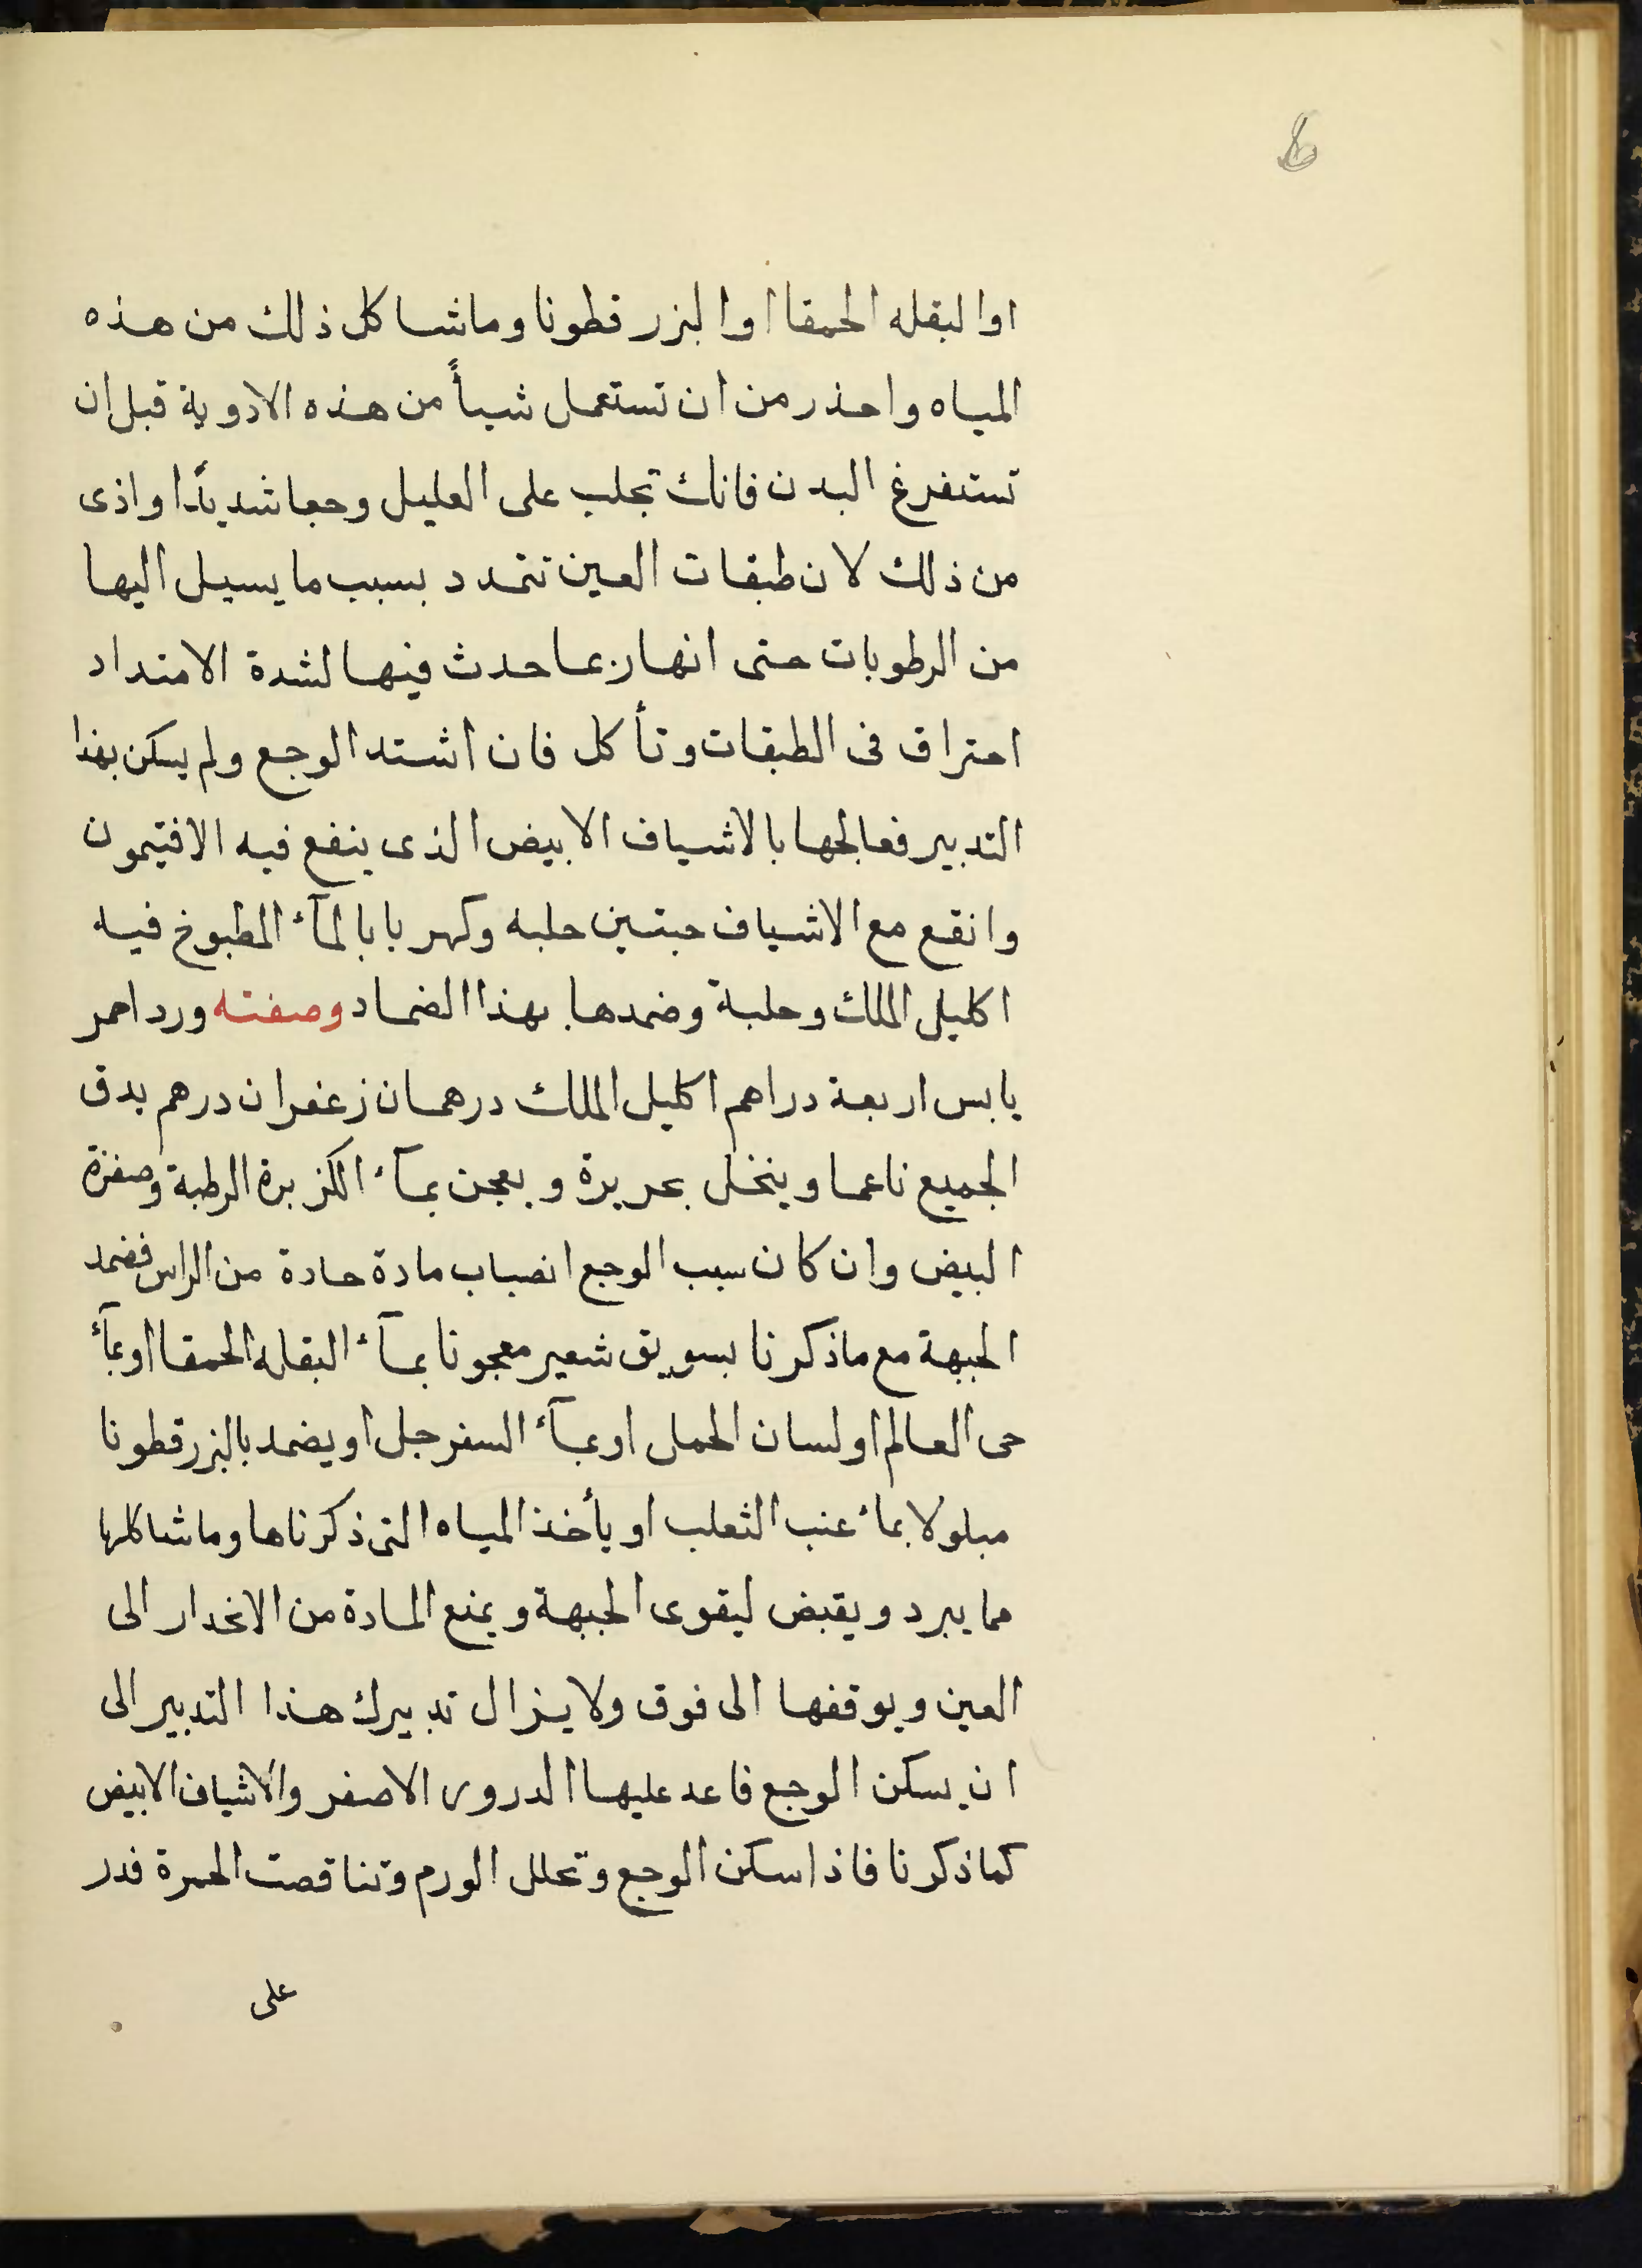 او البقله الحمقا او البزر قطونا وما شاكل ذلك من هذه
المياه واحذر من ان تستعمل شيأً من هذه الادوية قبل ان
تستفرغ البدن فانك تجلب على العليل وجعا شديدًا واذى
من ذلك لان طبقات العين تتمدد بسبب ما يسيل اليها
من الرطوبات حتى انها ربما حدث فيها لشدة الامتداد
احتراق فى الطبقات وتأكل فان اشتد الوجع ولم يسكن بهذا
التدبير فعالجها بالاشياف الابيض الذى ينفع فيه الافتيمون
وانقع مع الاشياف حبتين حلبه وكهربا بالمآء المطبوخ فيه
اكليل الملك وحلبة وضمدها بهذا الضماد وصفته ورد احمر
يابس اربعة دراهم اكليل الملك درهمان زعفران درهم يدق
الجميع ناعما وينخل بحريرة ويعجن بمآء الكزبرة الرطبة وصفرة
البيض وان كان سبب الوجع انصباب مادة حادة من الراس فضمد
الجبهة مع ما ذكرنا بسويق شعير معجونا بمآء البقله الحمقا او بمآء
حى العالم او لسان الحمل او بمآء السفرجل او يضمد بالبزر قطونا
مبلولا بماء عنب الثعلب او يأخذ المياه التى ذكرناها وما شاكلها
مما يبرد ويقبض ليقوى الجبهة ويمنع المادة من الانحدار الى
العين ويوقفها الى فوق ولا يزال تدبيرك هذا التدبير الى
ان يسكن الوجع فاعد عليها الدرور الاصفر والاشياف الابيض
كما ذكرنا فاذا سكن الوجع وتحلل الورم وتناقصت الحمرة فدر
على